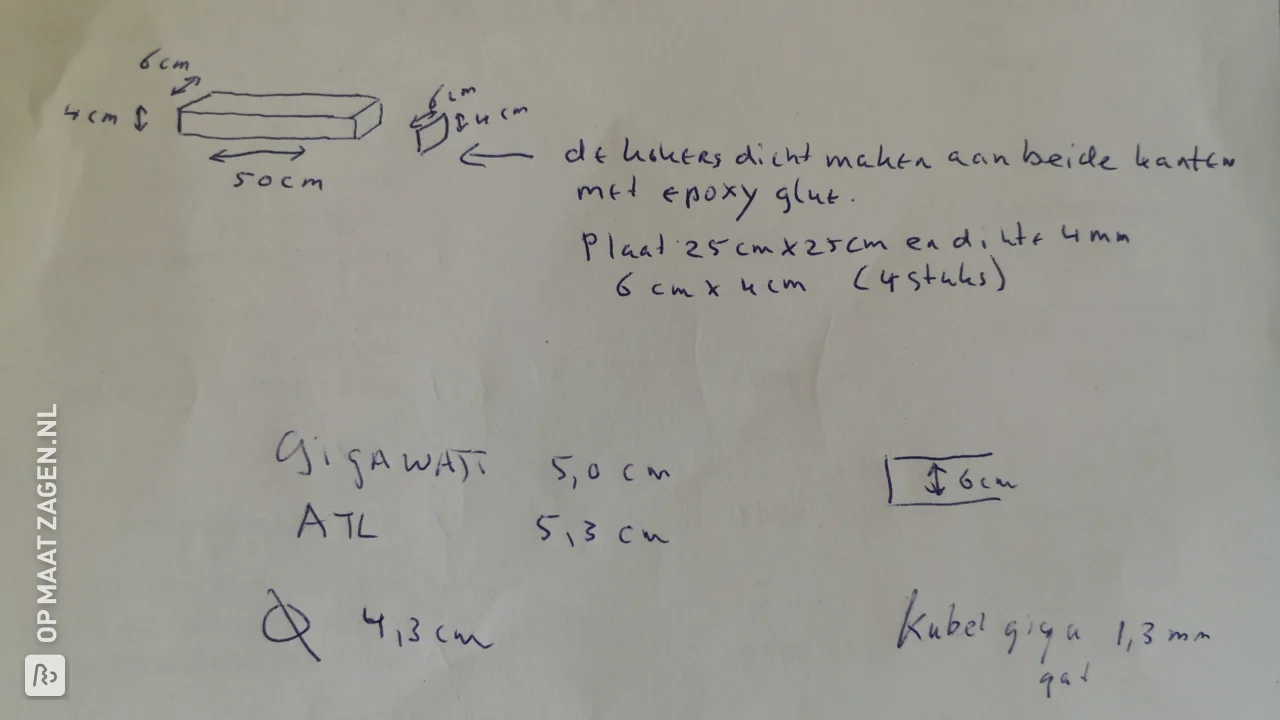 6cm
4cm
50cm
6cm
4cm
de kokers dicht maken aan beide kanten
met epoxy glue.
Plaat 25cm x 25cm en dikte 4mm
6 cm x 4cm (4 stuks)
GigAWATT 5,0 cm
ATL 5,3 cm
6cm
Ø 4,3 cm
Kabel giga 1,3 mm
gat
OPMAATZAGEN.NL